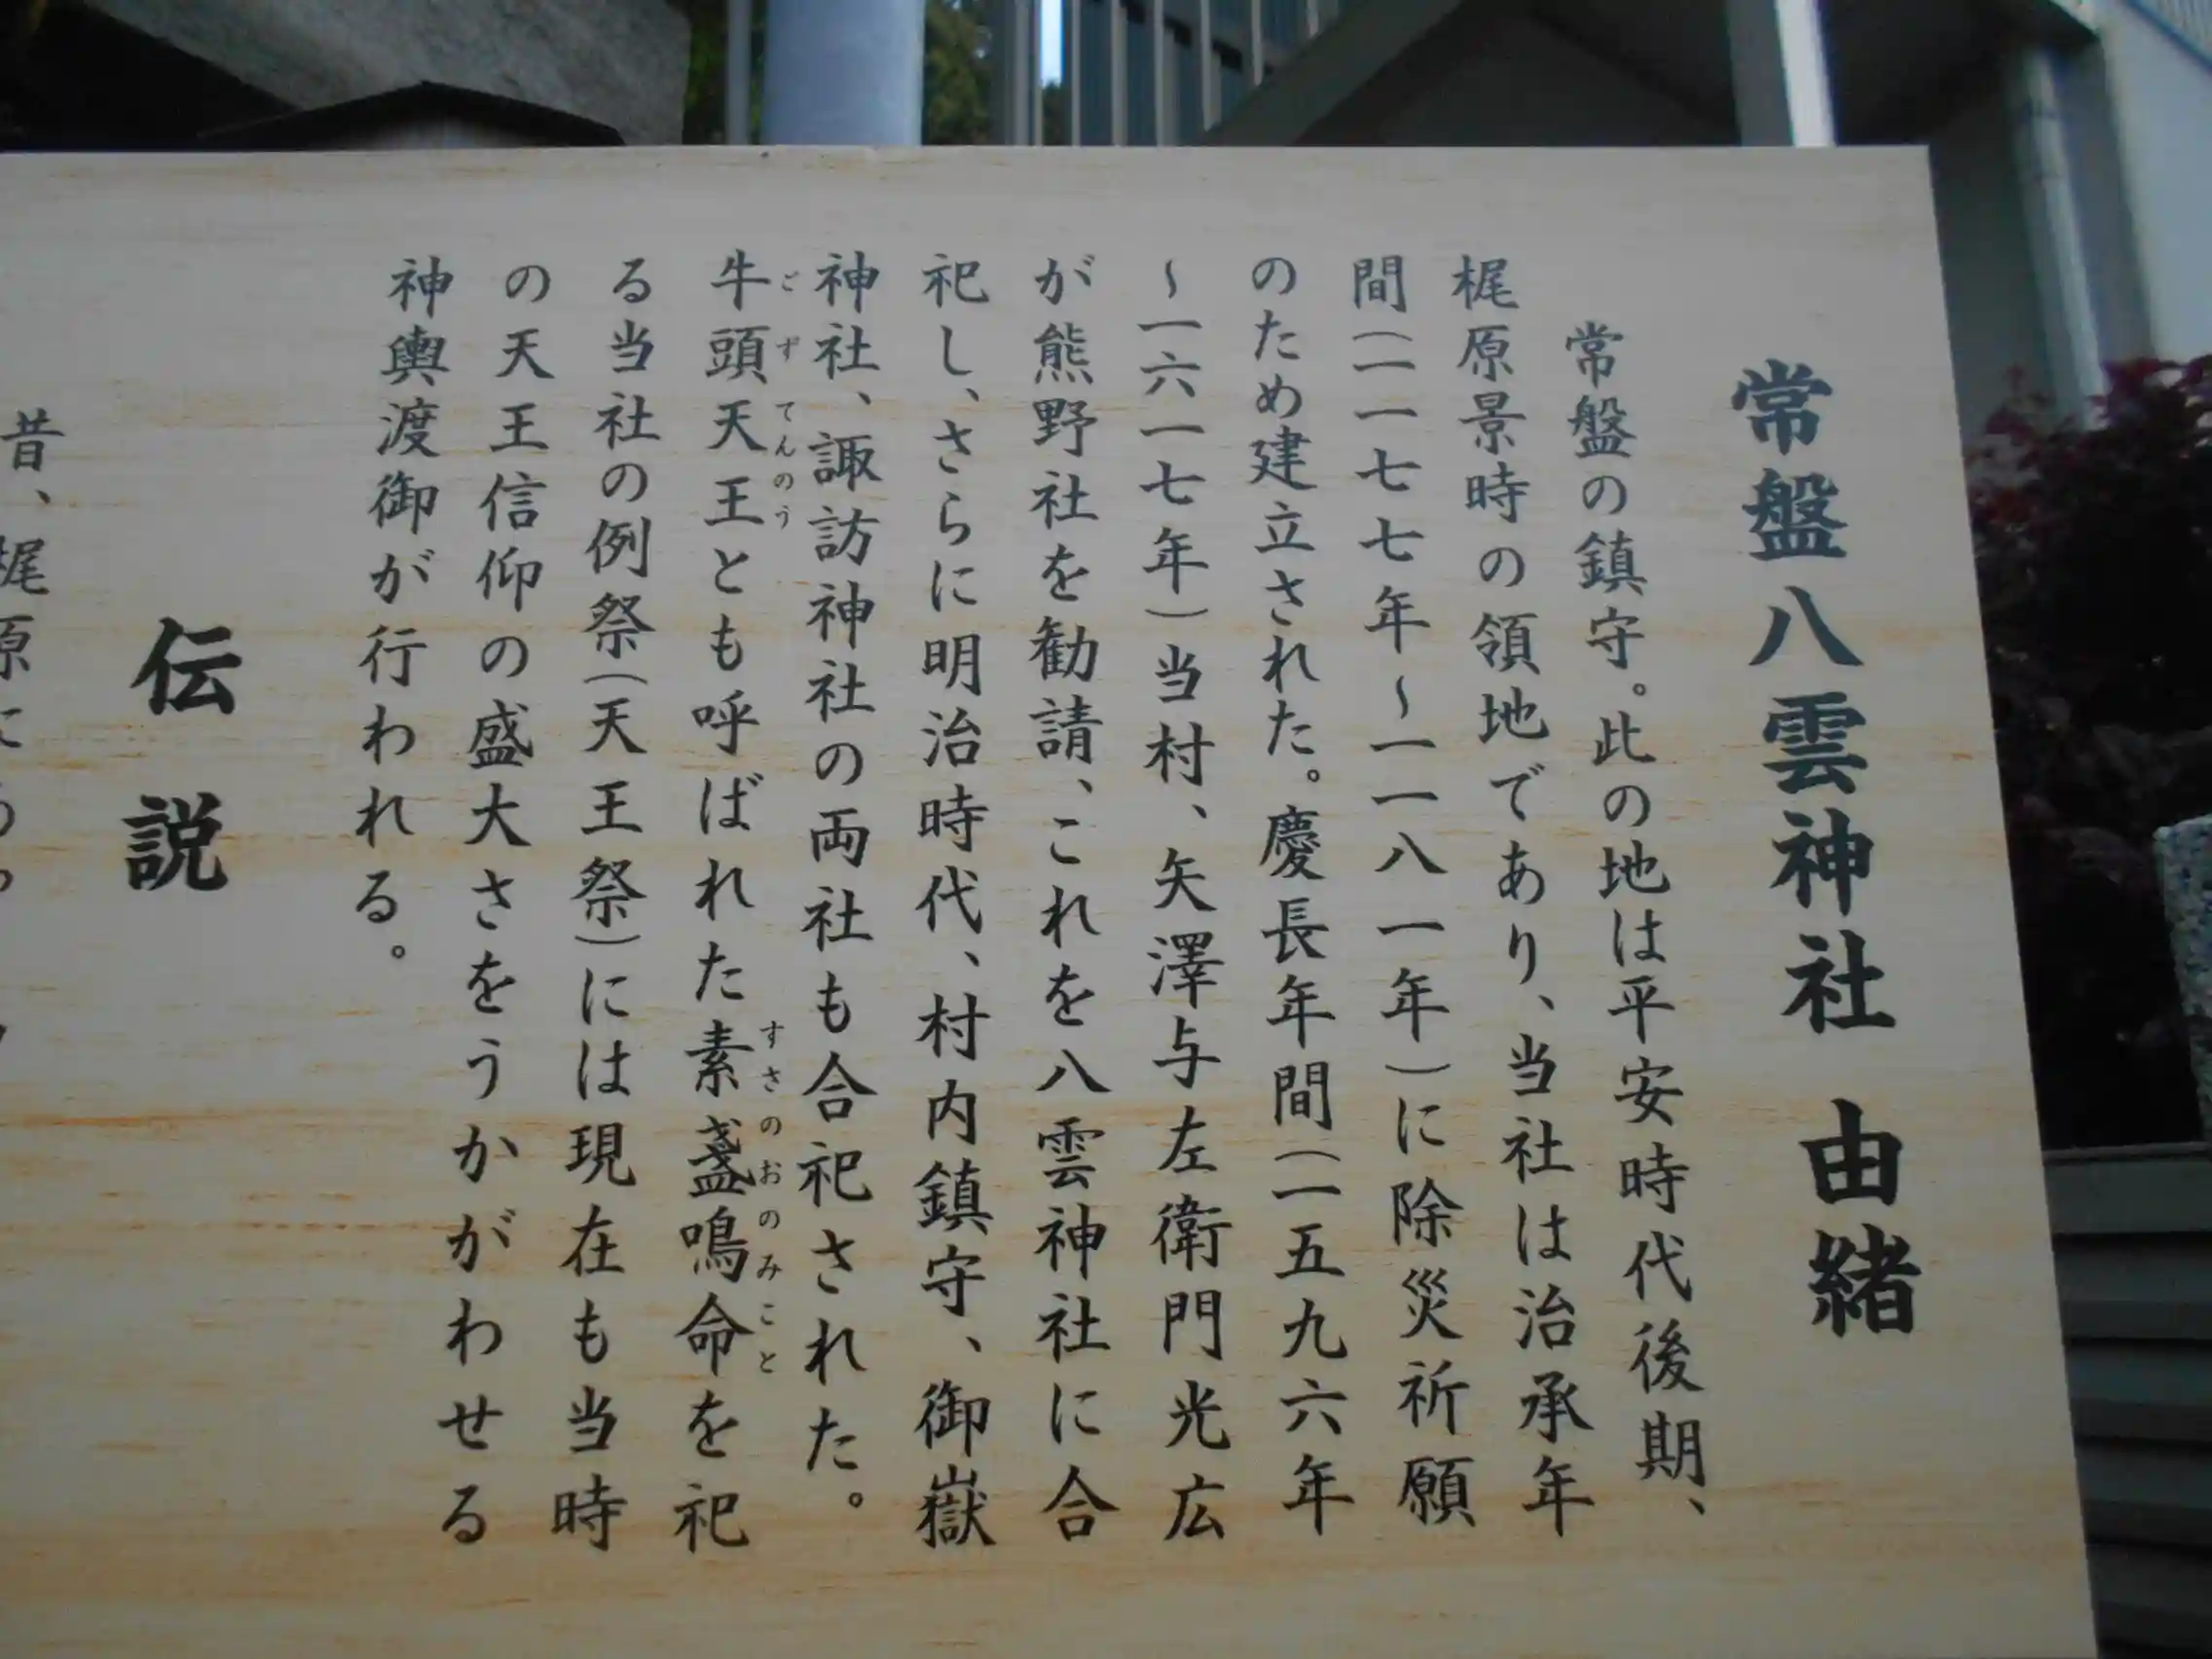 常盤八雲神社 由緒
常盤の鎮守。此の地は平安時代後期、
梶原景時の領地であり、当社は治承年
間(一一七七年~一一八一年)に除災祈願
のため建立された。慶長年間(一五九六年
~一六一七年)当村、矢澤与左衛門光広
が熊野社を勧請、これを八雲神社に合
祀し、さらに明治時代、村内鎮守、御嶽
神社、諏訪神社の両社も合祀された。
牛頭天王とも呼ばれた素盞鳴命を祀
ごずてんのう すさのおのみこと
る当社の例祭(天王祭)には現在も当時
の天王信仰の盛大さをうかがわせる
神輿渡御が行われる。
伝説
昔、梶原に